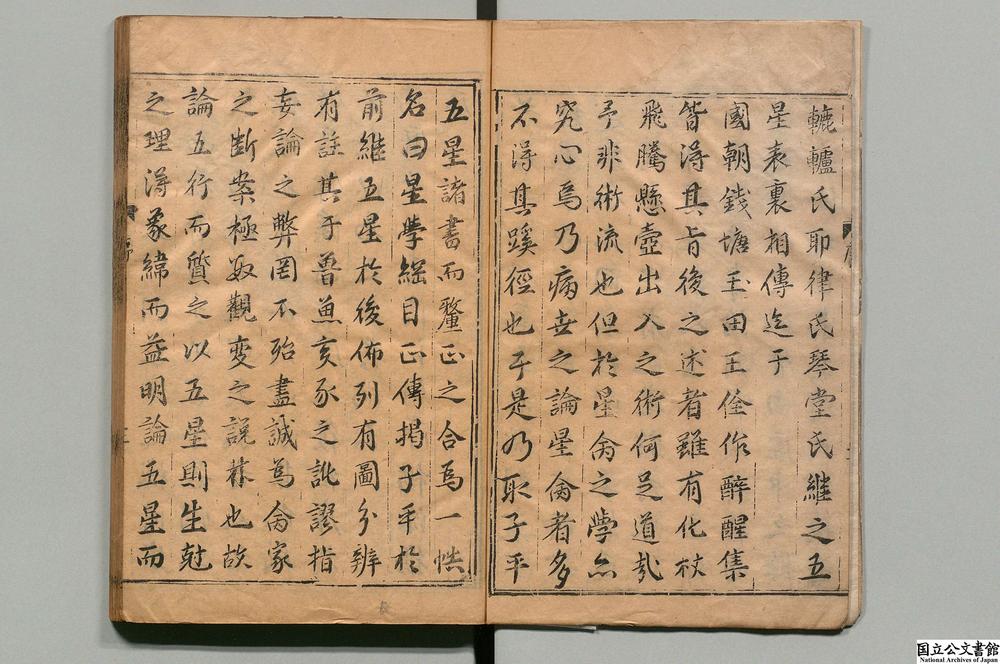 轆轤氏耶律氏琴堂氏継之五
星表裏相傳迄于
國朝錢塘玉田王佺作醉醒集
皆得其旨後之述者雖有化杖
飛騰懸壺出入之術何足道哉
予非術流也但於星禽之學亦
究心焉乃病世之論星禽者多
不得其蹊徑也于是乃取子平
五星諸書而釐正之合為一帙
名曰星學綱目正傳揭子平於
前継五星於後佈列有圖分辨
有註其于魯魚亥豕之訛謬指
妄論之弊罔不殆盡誠為禽家
之斷案極数觀變之說蔴也故
論五行而質之以五星則生尅
之理得象緯而益明論五星而
序
国立公文書館
National Archives of Japan